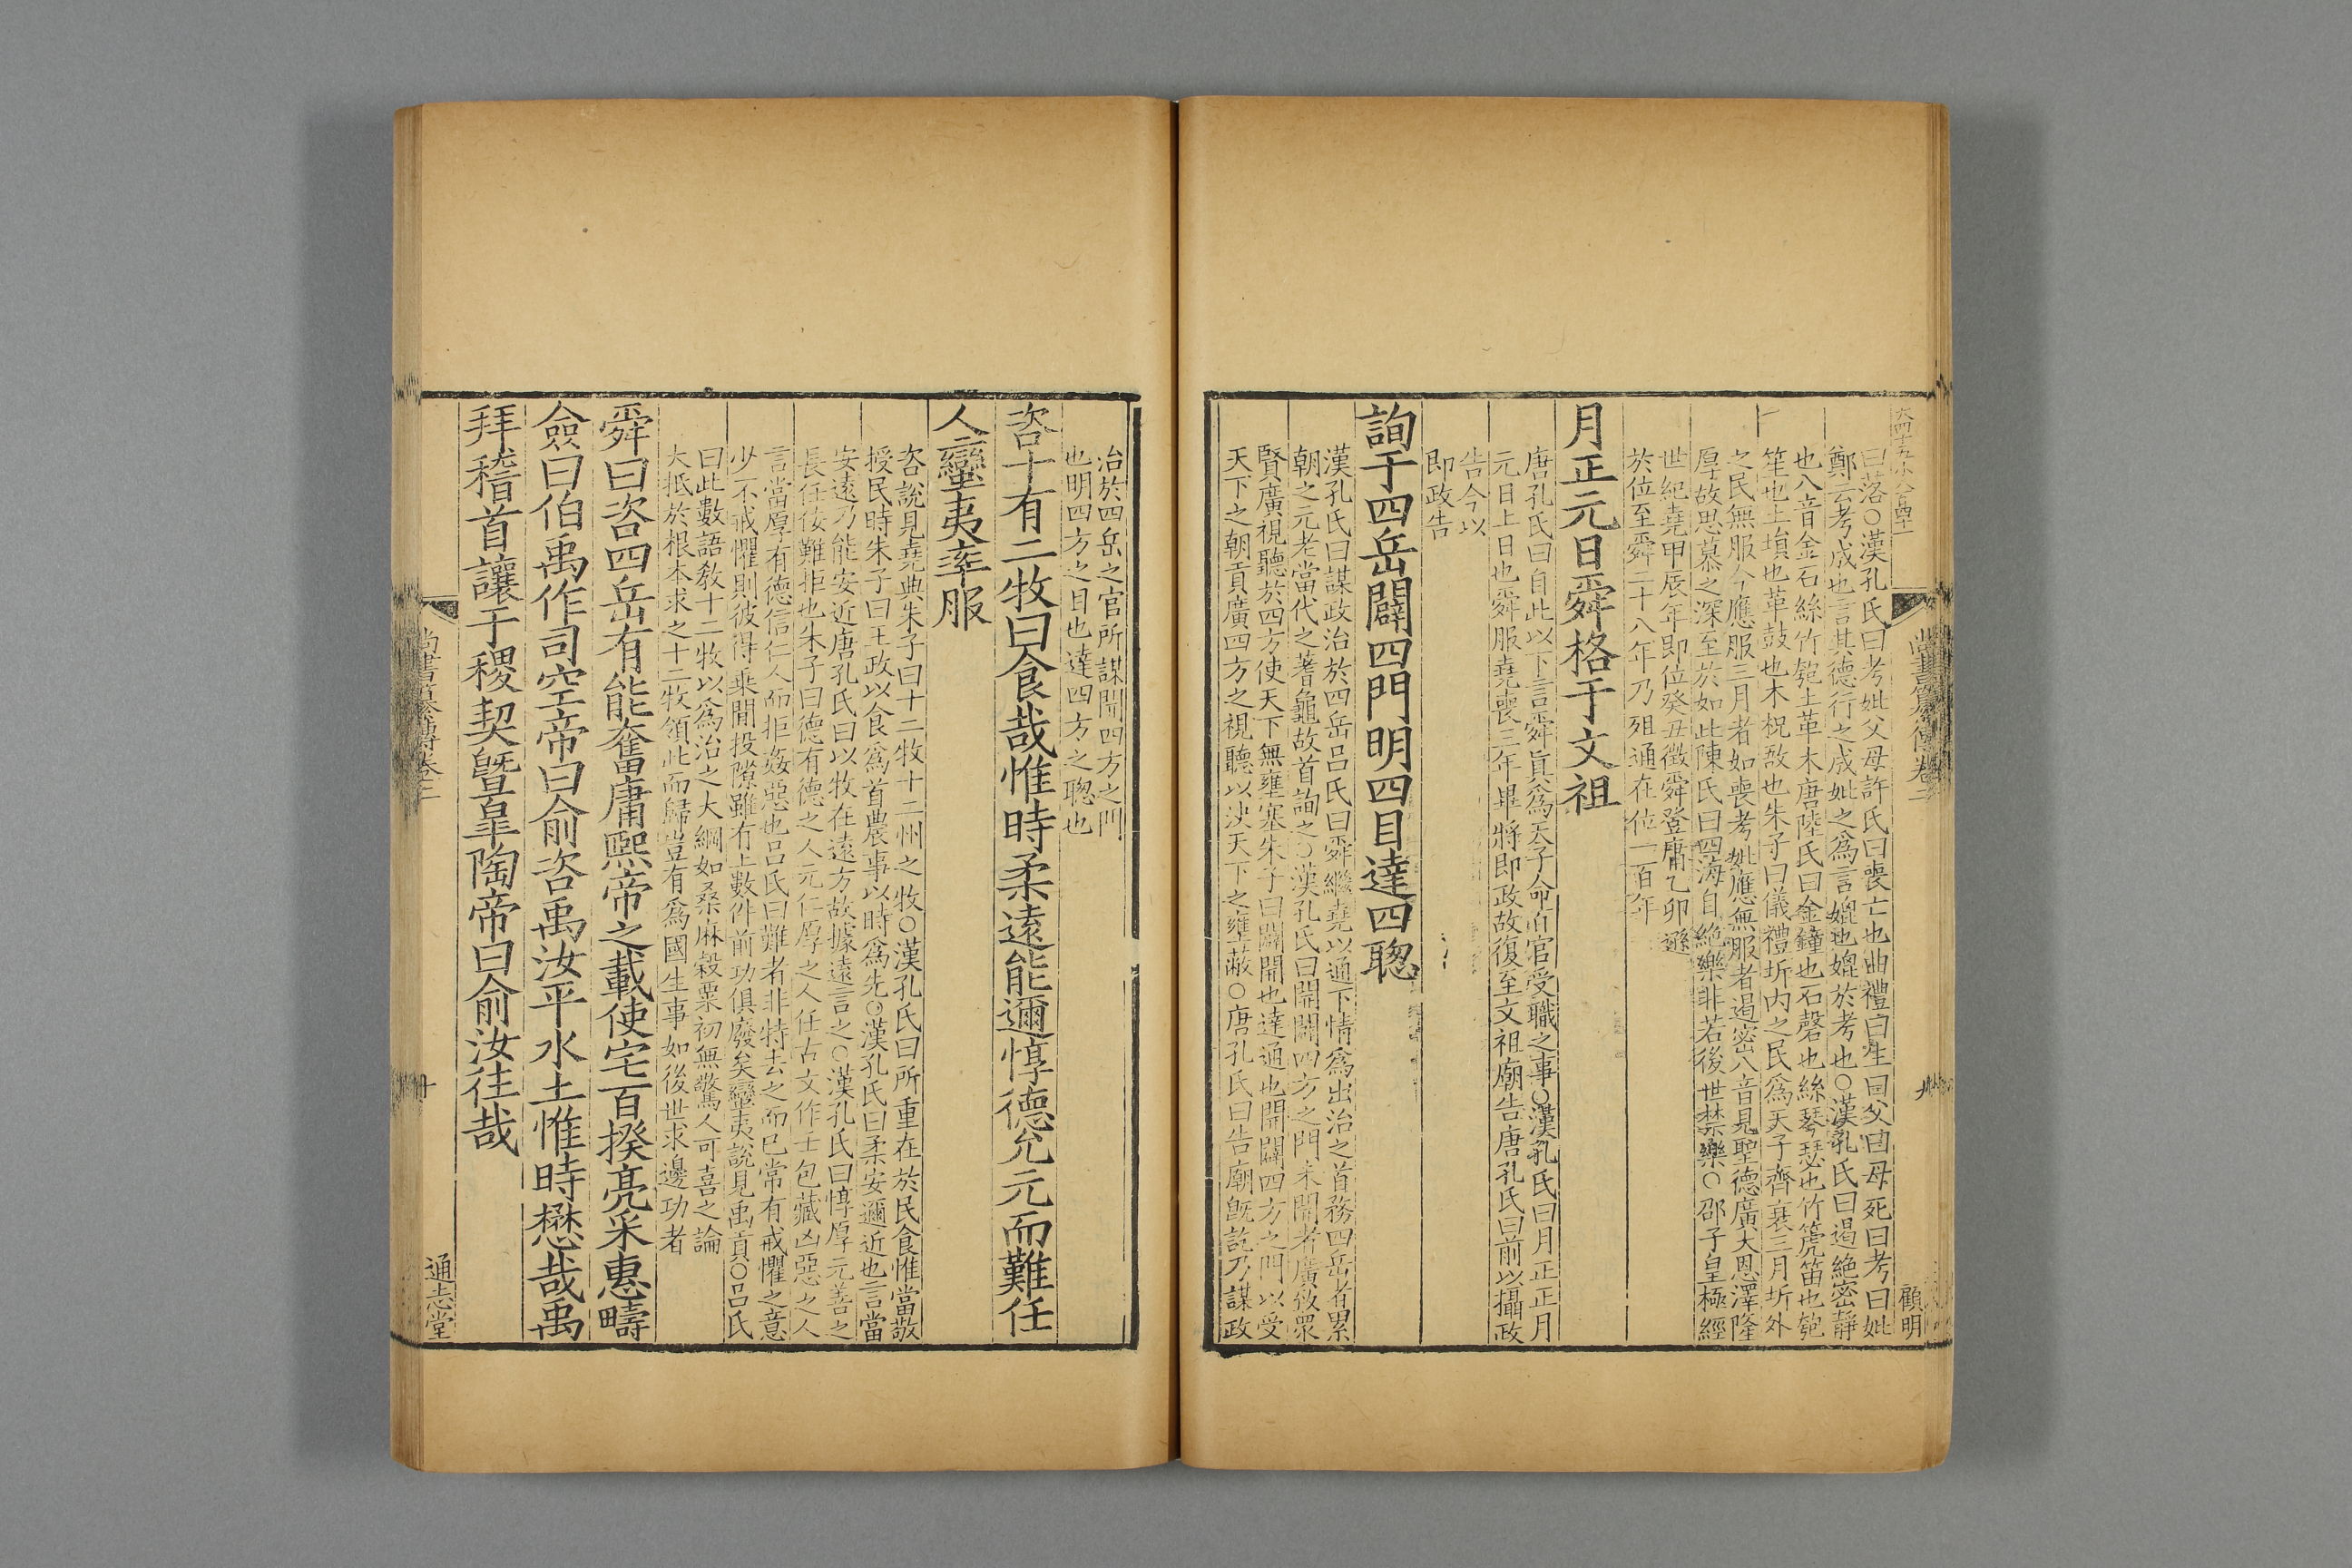 曰落○漢孔氏曰考妣父母許氏曰喪亡也曲禮曰生曰父曰母死曰考曰妣
鄭云考成也言其德行之成妣之爲言媲也媲於考也○漢孔氏曰遏絶密靜
也八音金石絲竹匏土革木唐陸氏曰金鐘也石磬也絲琴瑟也竹箎笛也匏
笙也土塤也革鼓也木柷敔也朱子曰儀禮圻内之民爲天子齊衰三月圻外
之民無服今應服三月者如喪考妣應無服者遏密八音見聖德廣大恩澤隆
厚故思慕之深至於如此陳氏曰四海自絶樂非若後世禁樂○邵子皇極經
世紀堯甲辰年即位癸丑徵舜登庸乙卯遜
於位至舜二十八年乃殂通在位一百年
月正元日舜格于文祖
唐孔氏曰自此以下言舜眞爲天子命百官受職之事○漢孔氏曰月正正月
元日上日也舜服堯喪三年畢將即政故復至文祖廟告唐孔氏曰前以攝政
告今以
即政告
詢于四岳闢四門明四目達四聰
漢孔氏曰謀政治於四岳吕氏曰舜繼堯以通下情爲出治之首務四岳者累
朝之元老當代之蓍龜故首詢之○漢孔氏曰開闢四方之門未開者廣致衆
賢廣視聽於四方使天下無壅塞朱子曰闢開也達通也開闢四方之門以受
天下之朝貢廣四方之視聽以決天下之壅蔽○唐孔氏曰告廟旣訖乃謀政
尚書纂傳卷二
顧明
治於四岳之官所謀開四方之門
也明四方之目也達四方之聰也
咨十有二牧曰食哉惟時柔遠能邇惇德允元而難任
人蠻夷率服
咨說見堯典朱子曰十二牧十二州之牧○漢孔氏曰所重在於民食惟當敬
授民時朱子曰王政以食爲首農事以時爲先○漢孔氏曰柔安邇近也言當
安遠乃能安近唐孔氏曰以牧在遠方故據遠言之○漢孔氏曰惇厚元善之
長任佞難拒也朱子曰德有德之人元仁厚之人任古文作壬包藏凶惡之人
言當厚有德信仁人而拒姦惡也吕氏曰難者非特去之而已常有戒懼之意
少不戒懼則彼得乘間投隙雖有上數件前功俱廢矣蠻夷說見禹貢○吕氏
曰此數語敎十二牧以爲治之大綱如桑麻穀粟初無驚人可喜之論
大抵於根本求之十二牧領此而歸豈有爲國生事如後世求邊功者
舜曰咨四岳有能奮庸熙帝之載使宅百揆亮采惠疇
僉曰伯禹作司空帝曰俞咨禹汝平水土惟時懋哉禹
拜稽首讓于稷契曁皐陶帝曰俞汝往哉
尚書纂傳卷二
十
通志堂